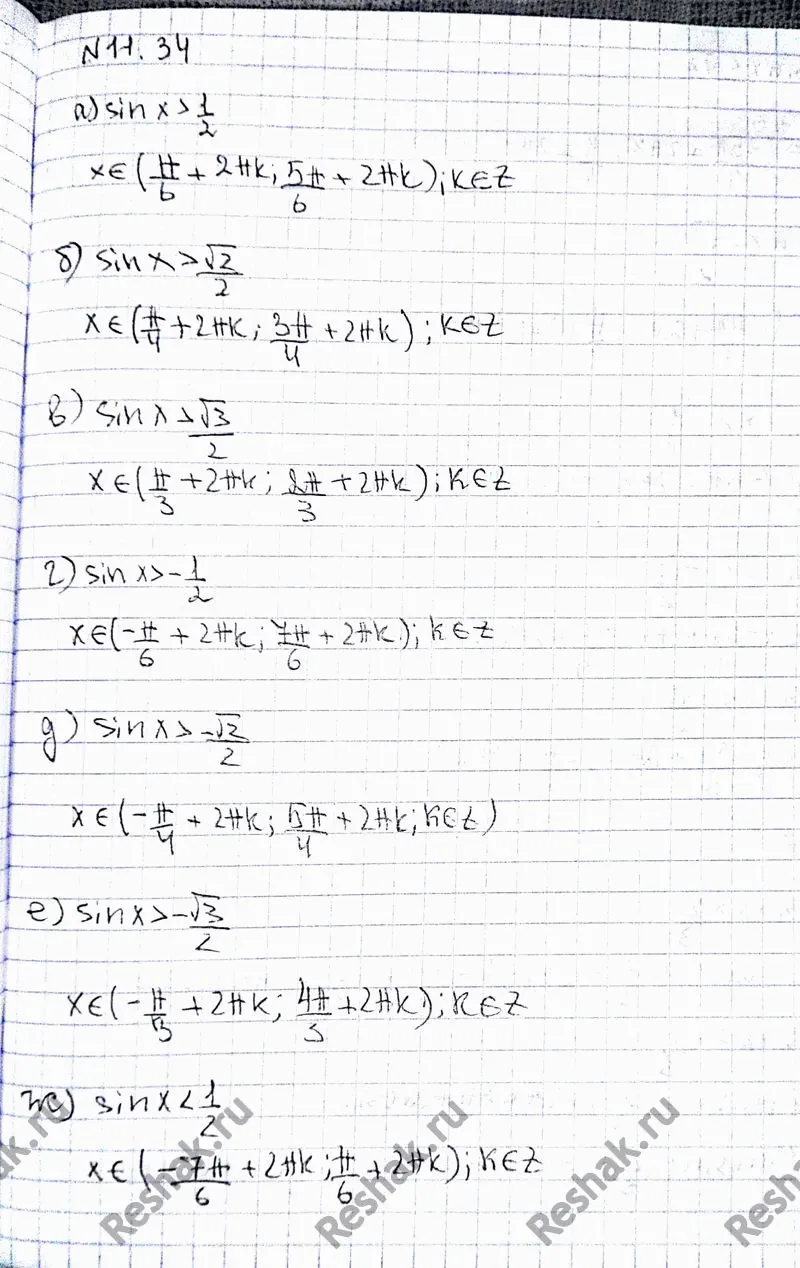 N 11. 34
а) sin x > 1/2
x ∈ (π/6 + 2πk; 5π/6 + 2πk); k ∈ Z
б) sin x > √2/2
x ∈ (π/4 + 2πk; 3π/4 + 2πk); k ∈ Z
в) sin x > √3/2
x ∈ (π/3 + 2πk; 2π/3 + 2πk); k ∈ Z
г) sin x > -1/2
x ∈ (-π/6 + 2πk; 7π/6 + 2πk); k ∈ Z
д) sin x > -√2/2
x ∈ (-π/4 + 2πk; 5π/4 + 2πk; k ∈ Z)
е) sin x > -√3/2
x ∈ (-π/3 + 2πk; 4π/3 + 2πk); k ∈ Z
ж) sin x < 1/2
x ∈ (-7π/6 + 2πk; π/6 + 2πk); k ∈ Z
Reshak.ru
Reshak.ru
Reshak.ru